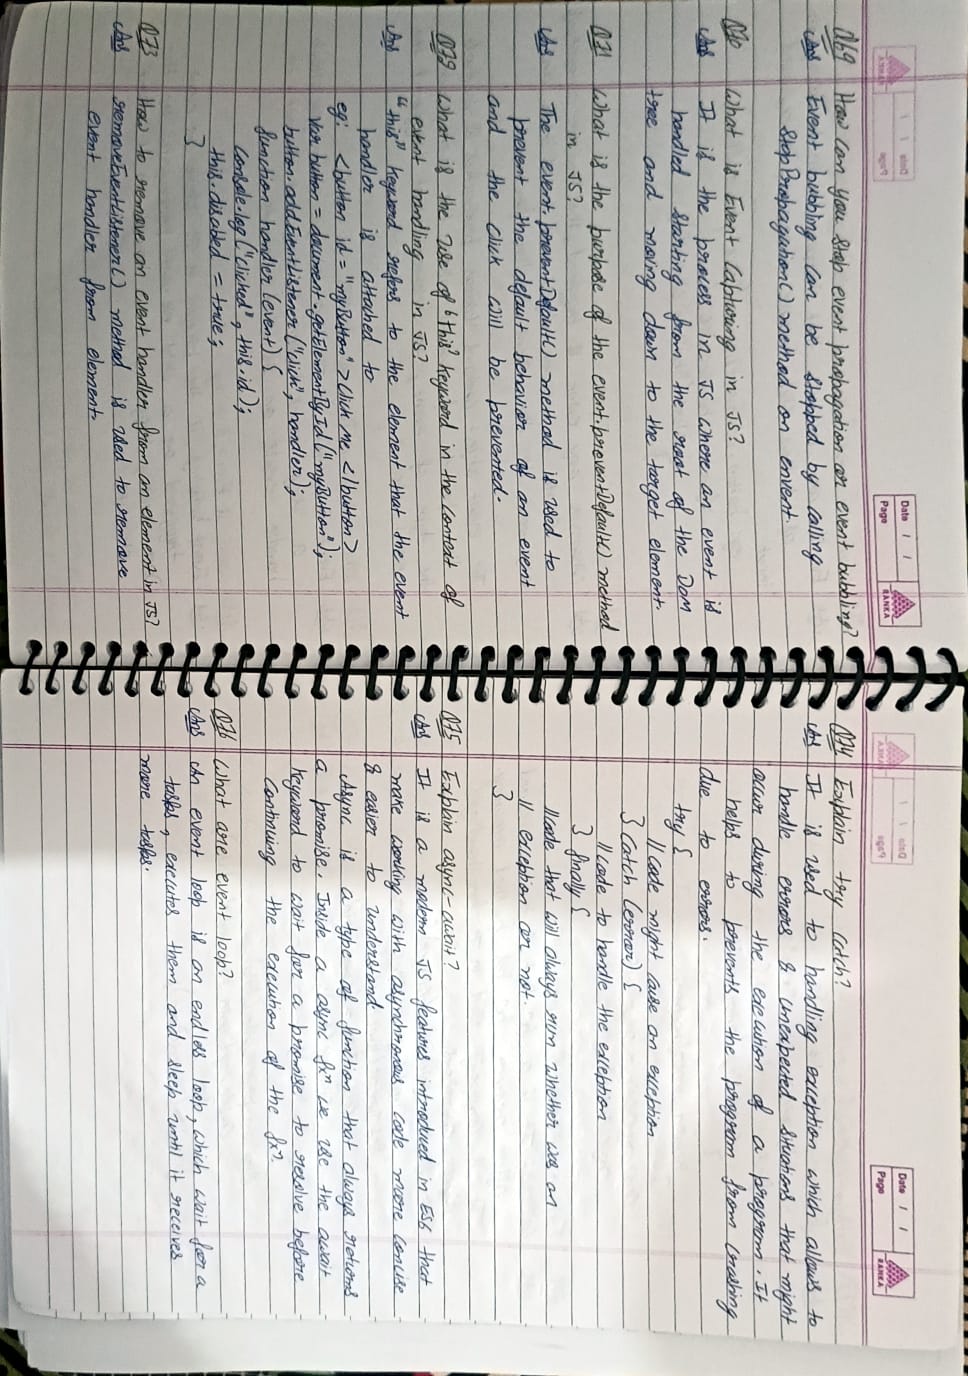 Date
Page
RANKA
Q69 How can you stop event propagation or event bubbling?
Ans Event bubbling can be stopped by calling
stopPropagation() method on envent.
Q70 What is Event Capturing in JS?
Ans It is the process in JS where an event is
handled starting from the root of the Dom
tree and moving down to the target element.
Q71 What is the purpose of the event.preventDefault() method
in JS?
Ans The event.preventDefault() method is used to
prevent the default behavior of an event
and the click will be prevented.
Q79 What is the use of "this" keyword in the context of
event handling in JS?
Ans "this" keyword refers to the element that the event
handler is attached to
eg: <button id = "myButton" > Click me </button>
Var button = document.getElementById("myButton");
button.addEventListener("click", handler);
function handler (event) {
console.log("clicked", this.id);
this.disabled = true;
}
Q73 How to remove an event handler from an element in JS?
Ans removeEventListener() method is used to remove
event handler from element.
Date
Page
RANKA
Q74 Explain try catch?
Ans It is used to handling exception which allows to
handle errors & unexpected situations that might
occur during the execution of a program. It
helps to prevents the program from crashing
due to errors.
try {
//code might cause an exception
} Catch (error) {
//code to handle the exception
} finally {
//code that will always run whether was an
// exception or not.
}
Q75 Explain async-await?
Ans It is a modern JS features introduced in ES6 that
make working with asynchronous code more concise
& easier to understand.
Async is a type of function that always returns
a promise. Inside a async fx we use the await
keyword to wait for a promise to resolve before
continuing the execution of the fx?
Q76 What are event loop?
Ans An event loop is an endless loop, which wait for a
tasks, executes them and sleep until it receives
more tasks.